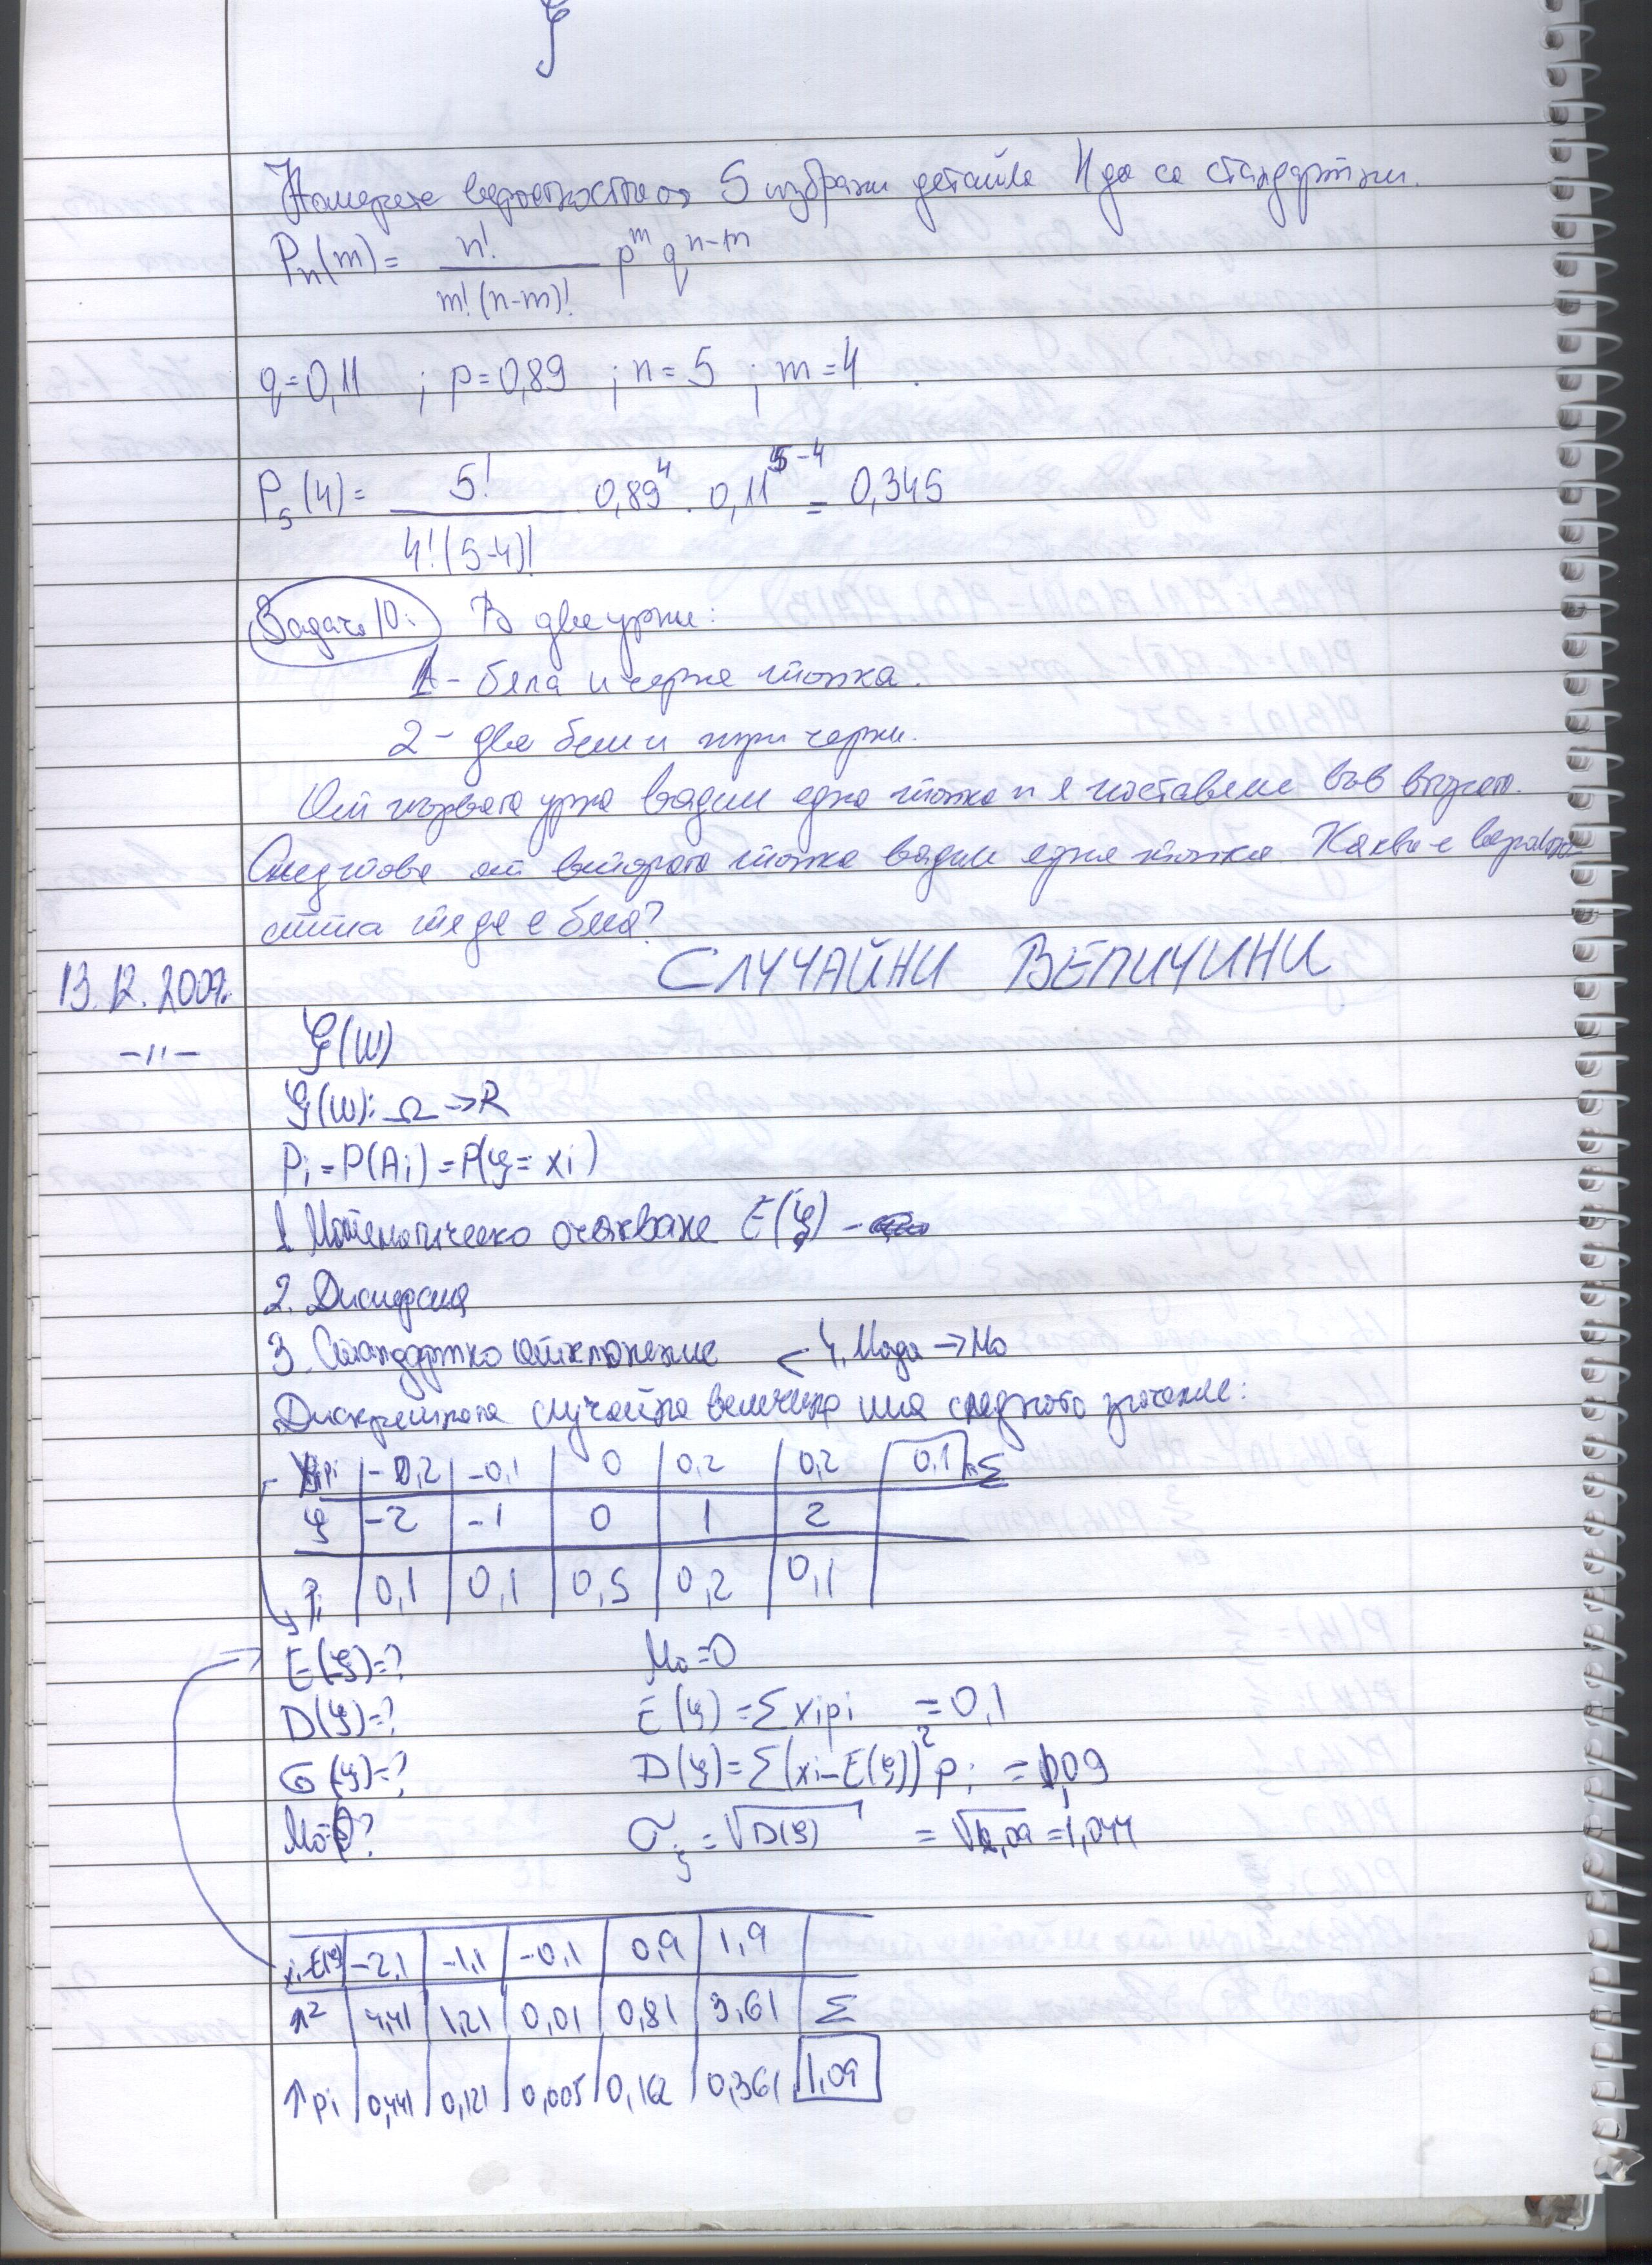 ξ
Намерете вероятността от 5 избрани детайла 4 да са стандартни.
Pn(m) = n! / m!(n-m)! p^m q^n-m
q=0,11 ; p=0,89 ; n=5 ; m=4
P5(4) = 5! / 4!(5-4)! 0,89^4 . 0,11^5-4 = 0,345
Задача 10: В две урни:
1 - бяла и черна топка.
2 - две бели и три черни.
От първата урна вадим една топка и я поставяме във втората.
След това от втората топка вадим една топка Каква е вероятно-
стта тя да е бяла?
13.12.2007г. СЛУЧАЙНИ ВЕЛИЧИНИ
-"- ξ(W)
ξ(W): Ω → R
Pi = P(Ai) = P(ξ = xi)
1. Математическо очакване E(ξ) -
2. Дисперсия
3. Стандартно отклонение < 4. Мода → Mo
Дискретната случайна величина има следното значение:
xipi | -0,2 | -0,1 | 0 | 0,2 | 0,2 | 0,1 Σ
ξ | -2 | -1 | 0 | 1 | 2
Pi | 0,1 | 0,1 | 0,5 | 0,2 | 0,1
E(ξ)=? Mo=0
D(ξ)=? E(ξ) = Σ xipi = 0,1
σ(ξ)=? D(ξ) = Σ(xi-E(ξ))² pi = 1,09
Mo=? σξ = √D(ξ) = √1,09 = 1,044
xi-E(ξ) | -2,1 | -1,1 | -0,1 | 0,9 | 1,9
↑² | 4,41 | 1,21 | 0,01 | 0,81 | 3,61 | Σ
↑pi | 0,441 | 0,121 | 0,005 | 0,162 | 0,361 | 1,09